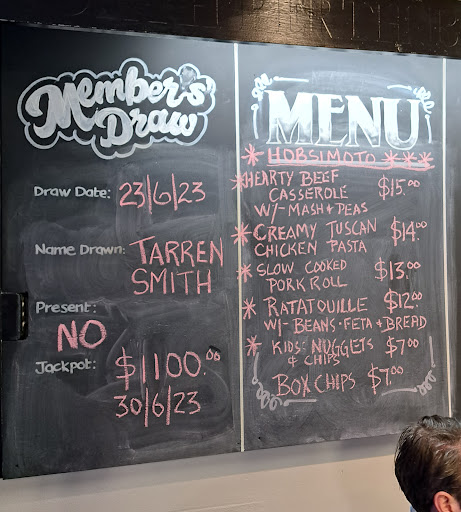 Member's
Draw
Draw Date: 23/6/23
Name Drawn: TARREN
SMITH
Present:
NO
Jackpot: $1100.00
30/6/23
MENU
* HOBSIMOTO * * *
* HEARTY BEEF
CASSEROLE $15.00
W/- MASH & PEAS
* CREAMY TUSCAN
CHICKEN PASTA $14.00
* SLOW COOKED
PORK ROLL $13.00
* RATATOUILLE $12.00
W/- BEANS · FETA & BREAD
* KIDS: NUGGETS
& CHIPS $7.00
BOX CHIPS $7.00